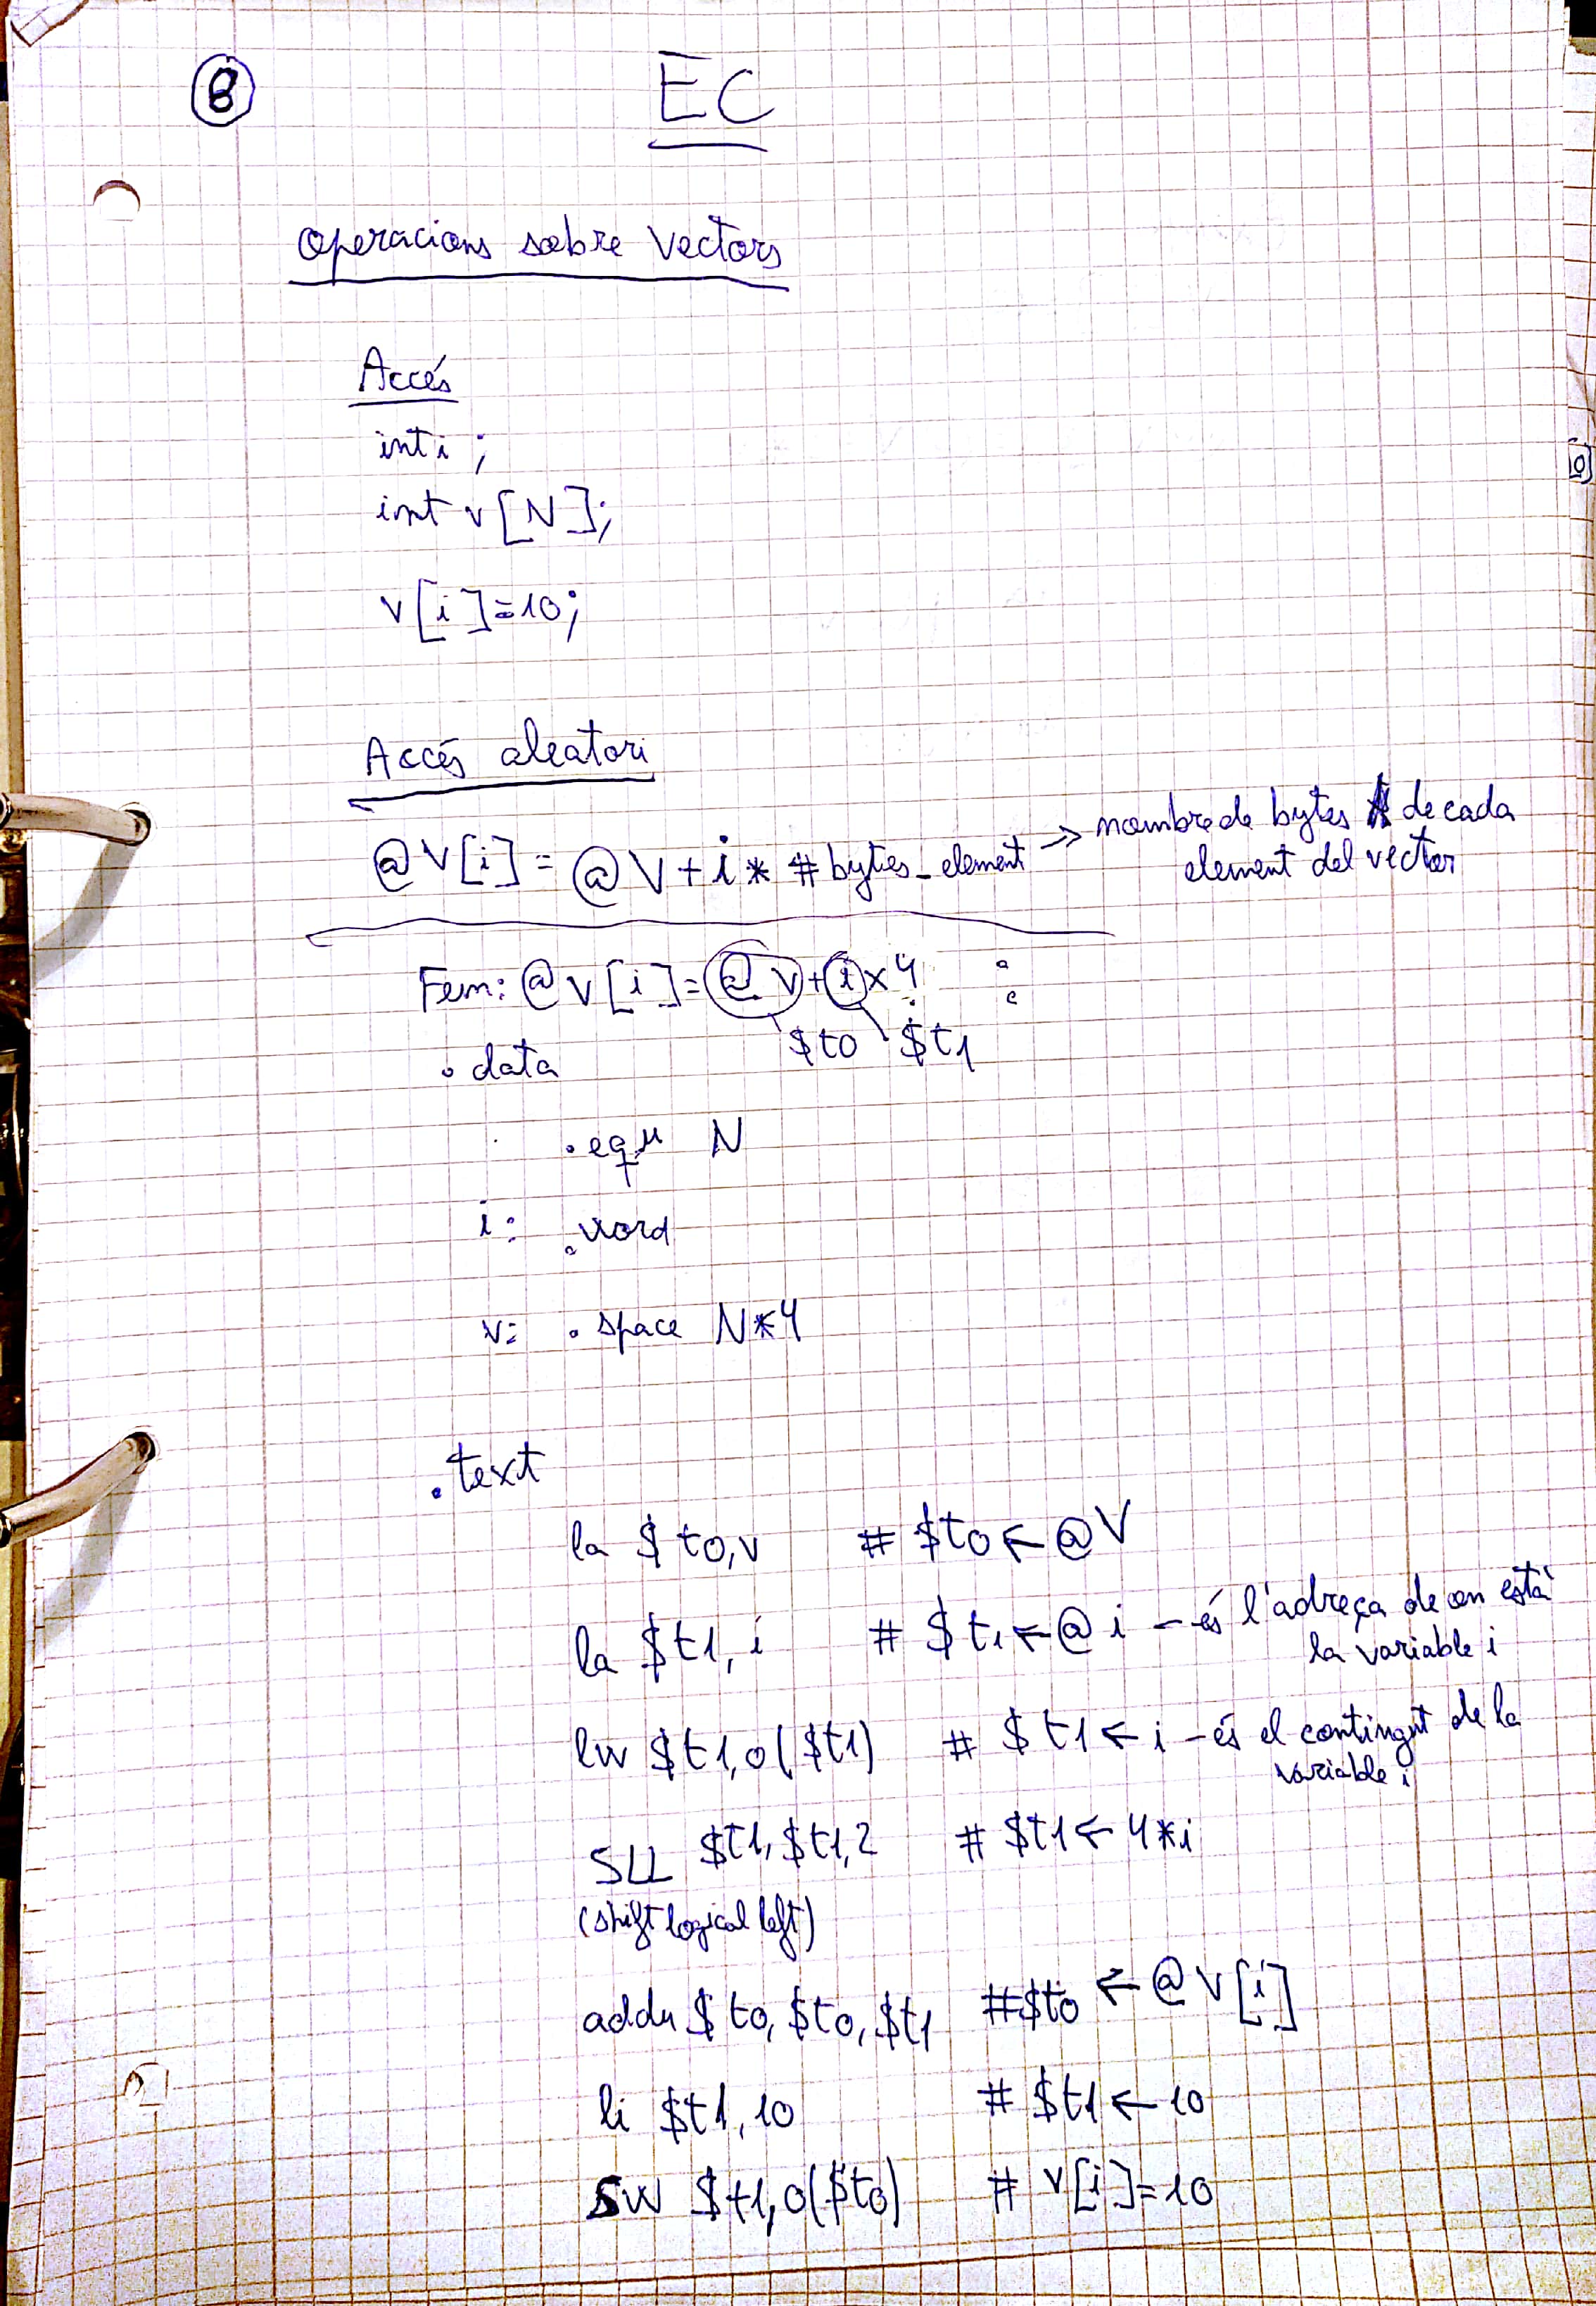 8
EC
Operacions sobre Vectors
Accés
int i;
int v[N];
v[i]=10;
Accés aleatori
@V[i] = @V + i * #bytes_element → nombre de bytes de cada
element del vector
Fem: @v[i] = @v + i x 4
$t0 $t1
.data
.equ N
i: .word
v: .space N*4
.text
la $t0, v # $t0 ← @V
la $t1, i # $t1 ← @i - és l'adreça de on està
la variable i
lw $t1, 0($t1) # $t1 ← i - és el contingut de la
variable i
SLL $t1, $t1, 2 # $t1 ← 4*i
(shift logical left)
addu $t0, $t0, $t1 # $t0 ← @v[i]
li $t1, 10 # $t1 ← 10
SW $t1, 0($t0) # v[i]=10